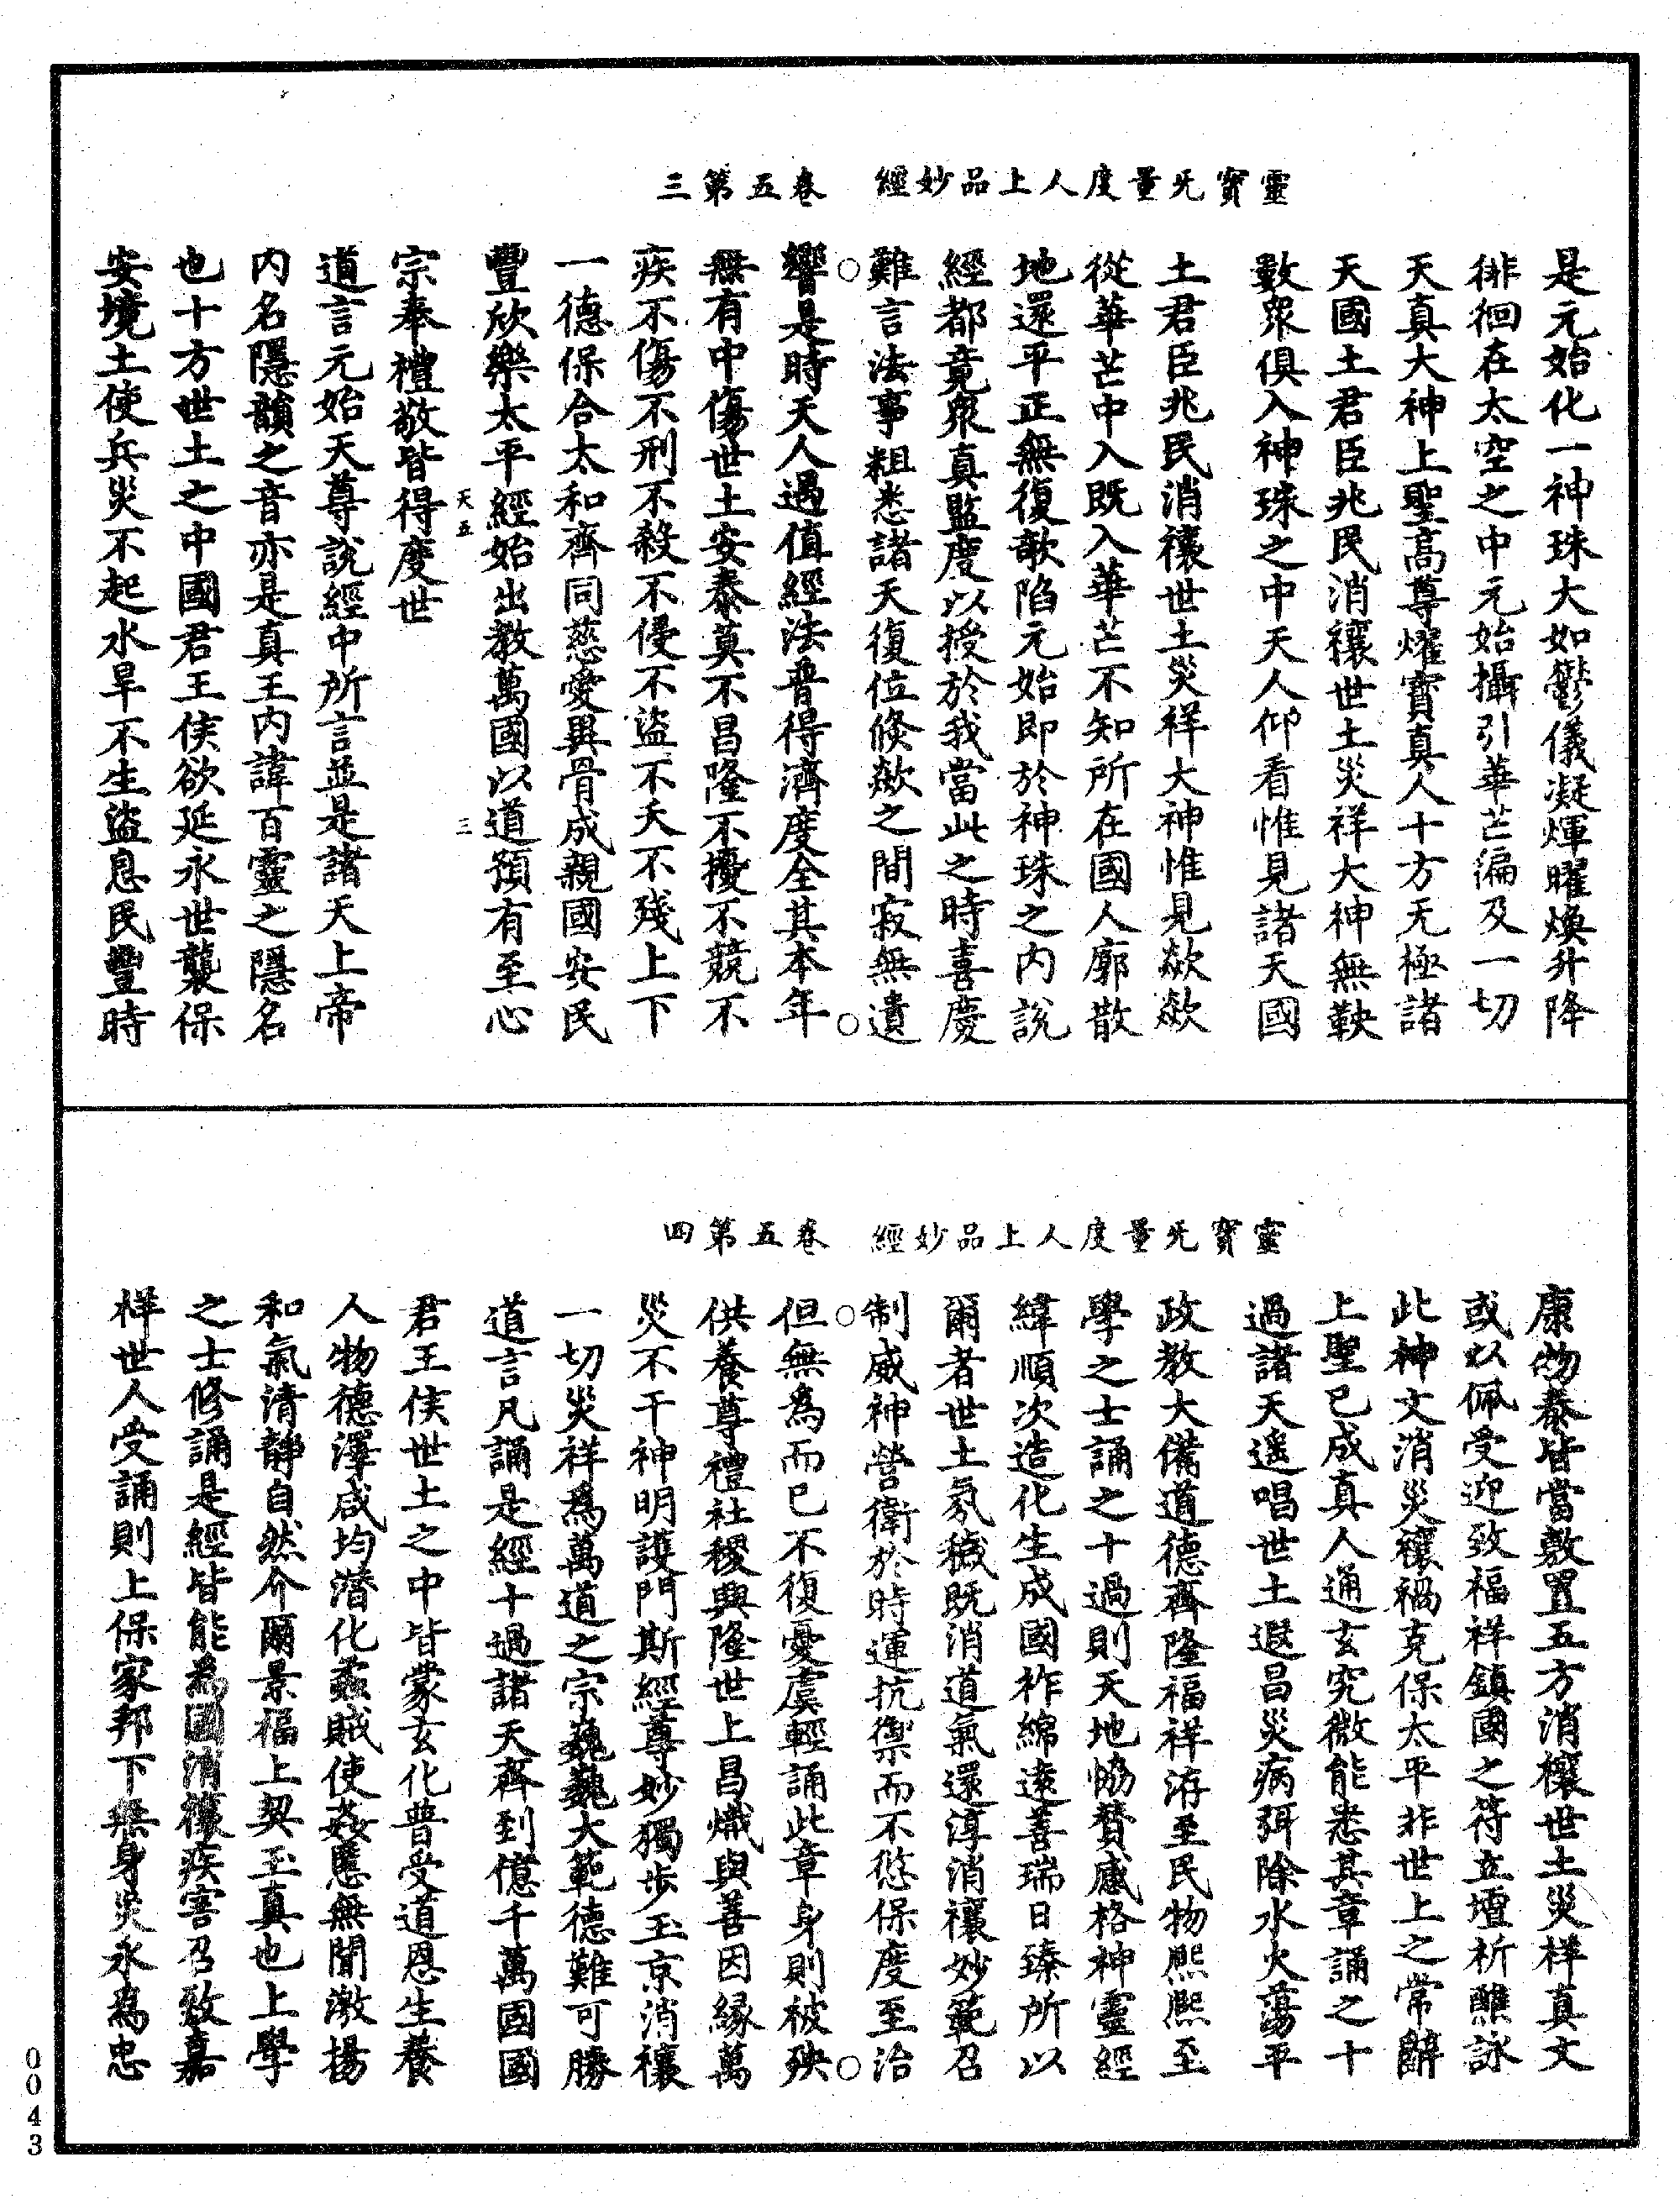 靈寶无量度人上品妙經　卷五第三
是元始化一神珠大如鬱儀凝煇曜煥升降
徘徊在太空之中元始攝引華芒徧及一切
天真大神上聖高尊燿寶真人十方无極諸
天國土君臣兆民消禳世土災祥大神無鞅
數衆俱入神珠之中天人仰看惟見諸天國
土君臣兆民消禳世土災祥大神惟見歘歘
從華芒中入既入華芒不知所在國人廓散
地還平正無復欹陷元始即於神珠之內說
經都竟衆真監度以授於我當此之時喜慶
難言法事粗悉諸天復位倐歘之間寂無遺
響是時天人遇值經法普得濟度全其本年
無有中傷世土安泰莫不昌隆不擾不競不
疾不傷不刑不殺不侵不盜不夭不殘上下
一德保合太和齊同慈愛異骨成親國安民
豐欣樂太平經始出教萬國以道預有至心
天五　三
宗奉禮敬皆得度世
道言元始天尊說經中所言並是諸天上帝
內名隱韻之音亦是真王內諱百靈之隱名
也十方世土之中國君王侯欲延永世襲保
安境土使兵災不起水旱不生盜息民豐時
靈寶无量度人上品妙經　卷五第四
康物泰皆當敷置五方消禳世土災祥真文
或以佩受迎致福祥鎮國之符立壇祈醮詠
此神文消災禳禍克保太平非世上之常辭
上聖已成真人通玄究微能悉其章誦之十
過諸天遙唱世土遐昌災病弭除水火蕩平
政教大備道德齊隆福祥洊至民物熙熙至
學之士誦之十過則天地恊贊感格神靈經
緯順次造化生成國祚綿遠善瑞日臻所以
爾者世土氛穢既消道氣還淳消禳妙範召
制威神營衛於時運抗禦而不愆保度至治
但無為而已不復憂虞輕誦此章身則被殃
供養尊禮社稷興隆世上昌熾與善因緣萬
災不干神明護門斯經尊妙獨步玉京消禳
一切災祥為萬道之宗巍巍大範德難可勝
道言凡誦是經十過諸天齊到億千萬國國
君王侯世土之中皆蒙玄化普受道恩生養
人物德澤咸均潛化蟊賊使姦慝無聞激揚
和氣清靜自然介爾景福上契玉真也上學
之士修誦是經皆能為國消禳疾害召致嘉
祥世人受誦則上保家邦下無身災永為忠
0043